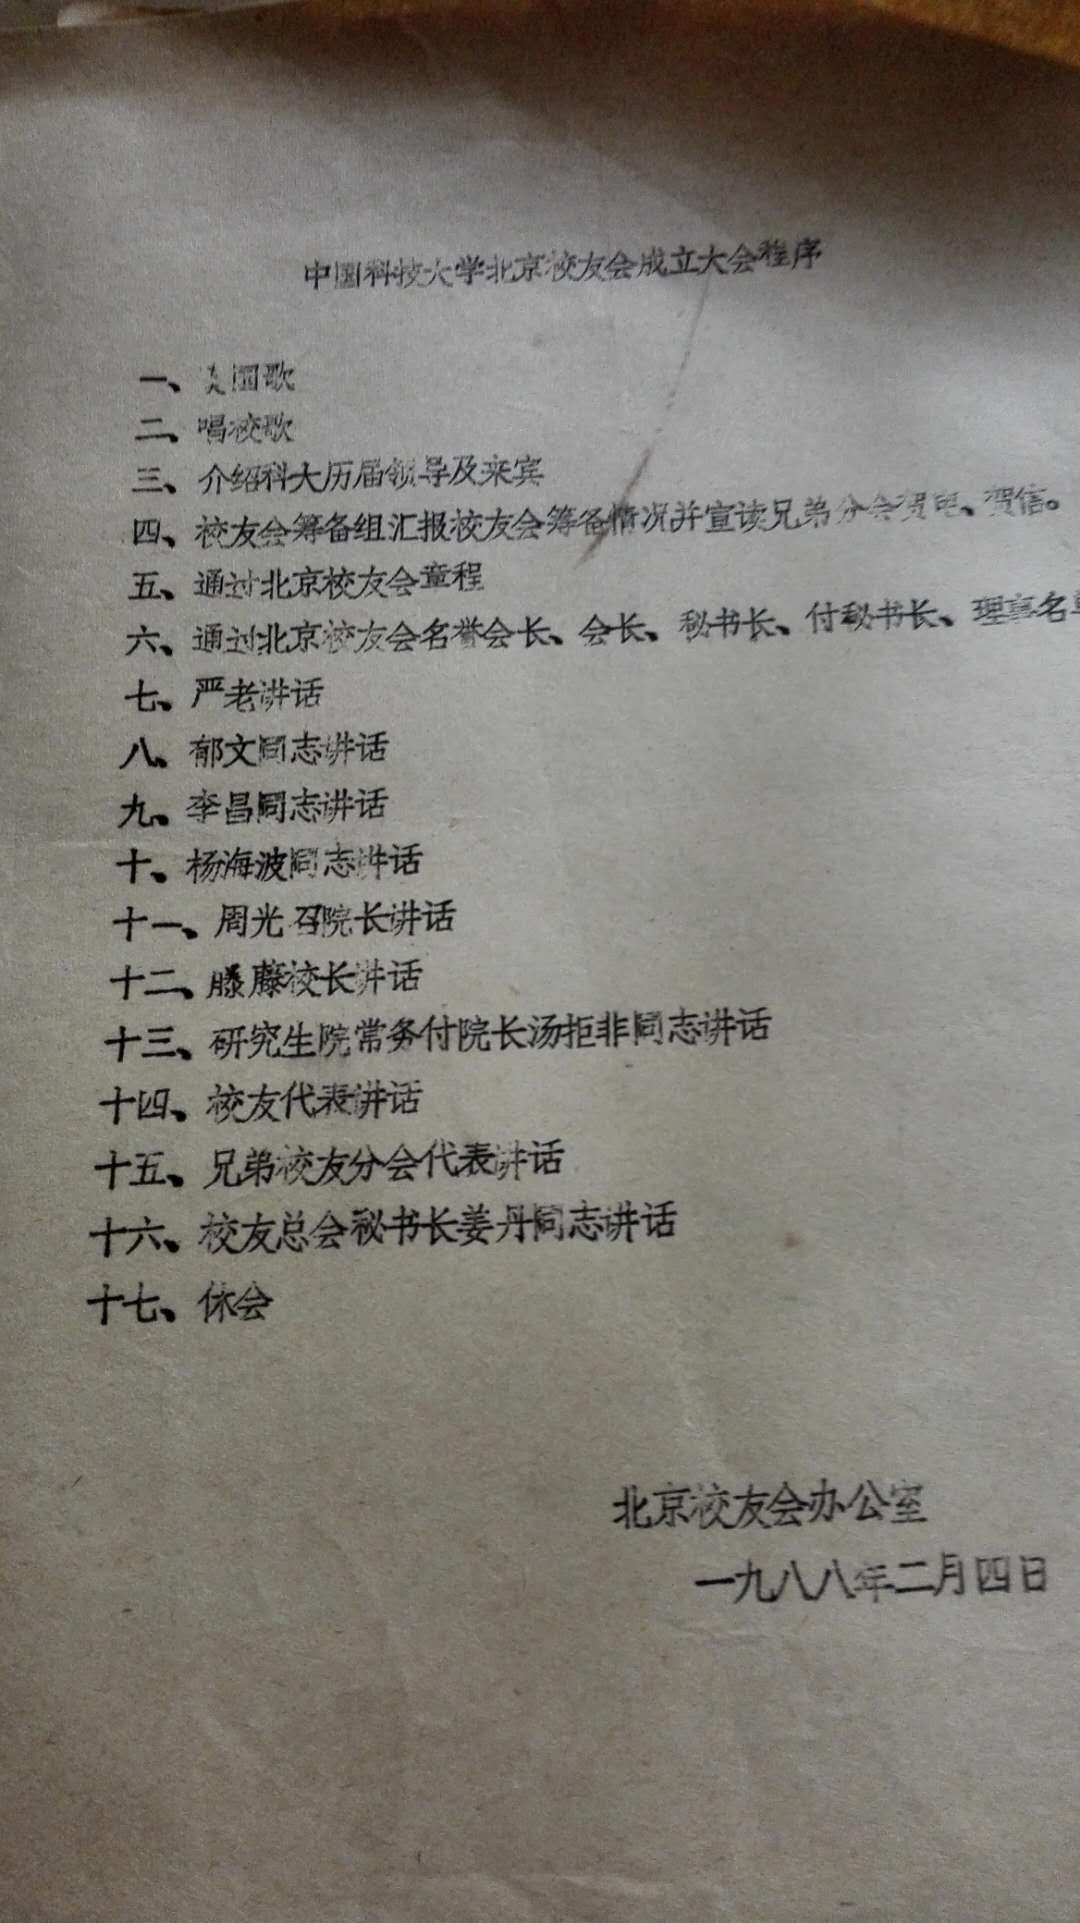 中国科技大学北京校友会成立大会程序
一、国歌
二、唱校歌
三、介绍科大历届领导及来宾
四、校友会筹备组汇报校友会筹备情况并宣读兄弟分会贺电、贺信。
五、通过北京校友会章程
六、通过北京校友会名誉会长、会长、秘书长、付秘书长、理事名单
七、严老讲话
八、郁文同志讲话
九、李昌同志讲话
十、杨海波同志讲话
十一、周光召院长讲话
十二、滕藤校长讲话
十三、研究生院常务付院长汤拒非同志讲话
十四、校友代表讲话
十五、兄弟校友分会代表讲话
十六、校友总会秘书长姜丹同志讲话
十七、休会
北京校友会办公室
一九八八年二月四日